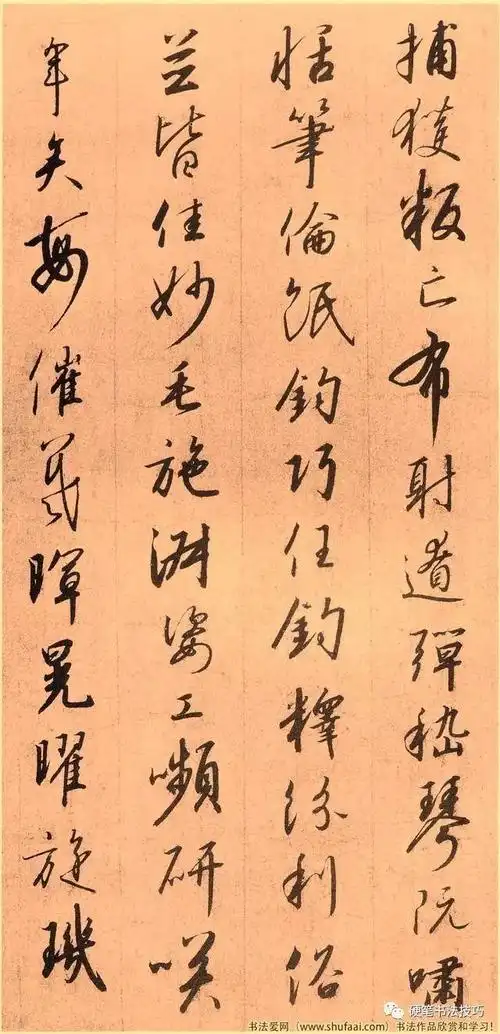 捕獲叛亡布射遼彈嵇琴阮嘯
恬筆倫紙鈞巧任釣釋紛利俗
並皆佳妙毛施淑姿工嚬研咲
年矢每催羲暉晃曜旋璣
硬笔书法技巧
书法爱网（www.shufaai.com）书法作品欣赏和学习!